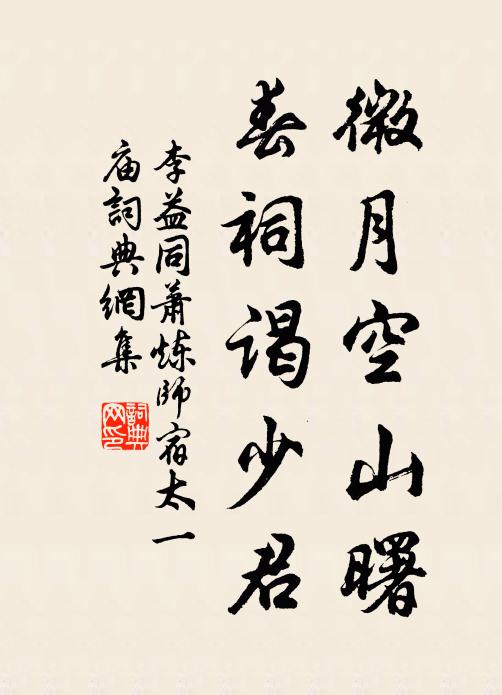 微月空山曙
春祠谒少君
李益同萧炼师宿太一
庙詞典網集
詞典网印